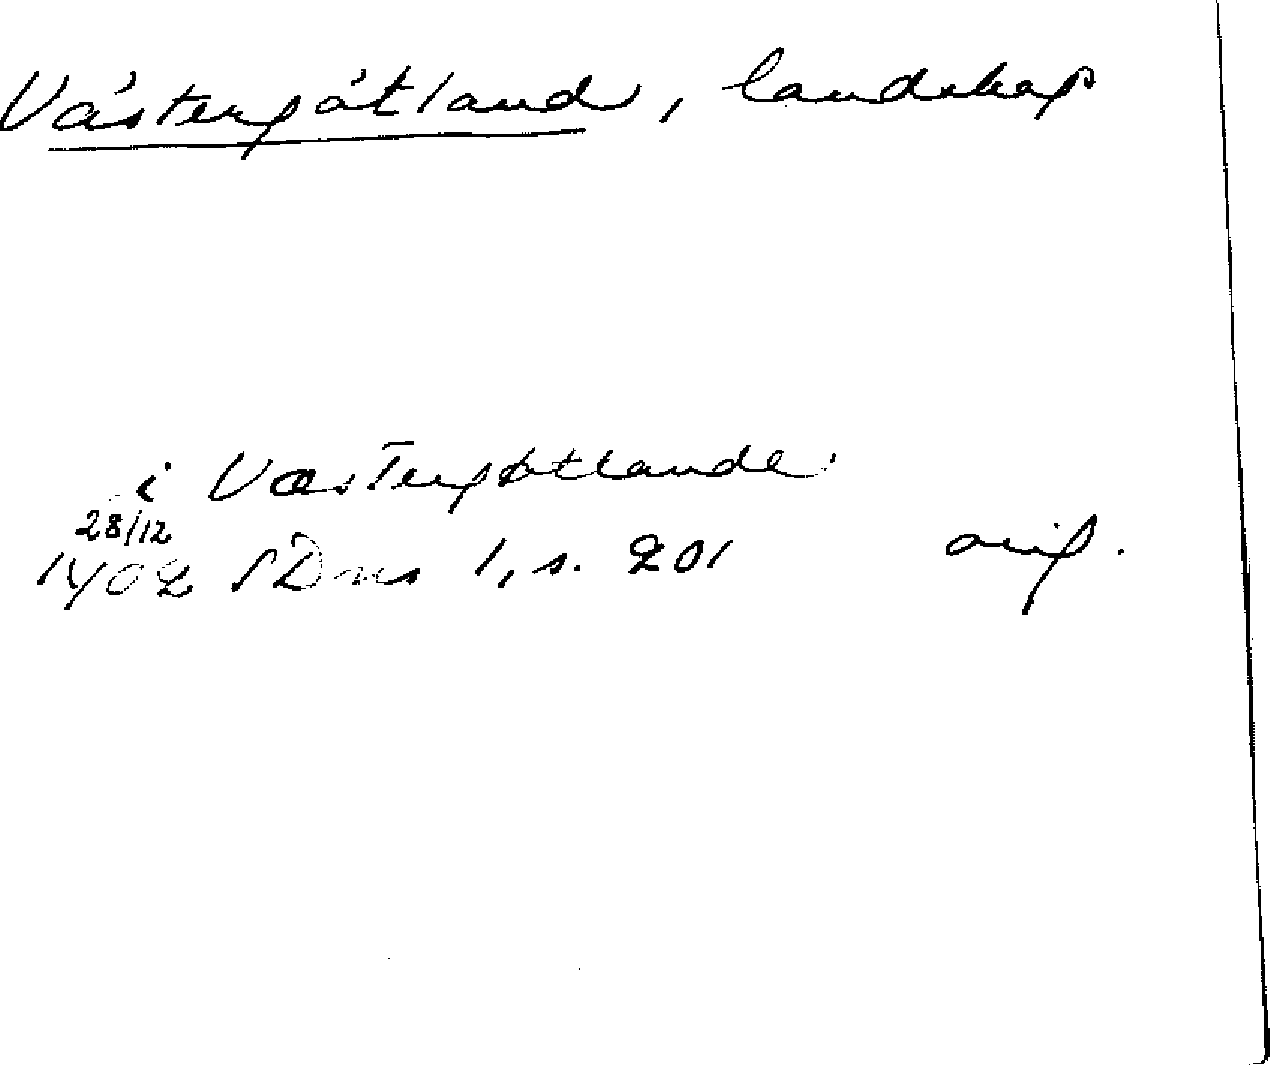 Västergötland, landskap
i Væstergøtlande
28/12
1402 SDns 1, s. 201 orig.